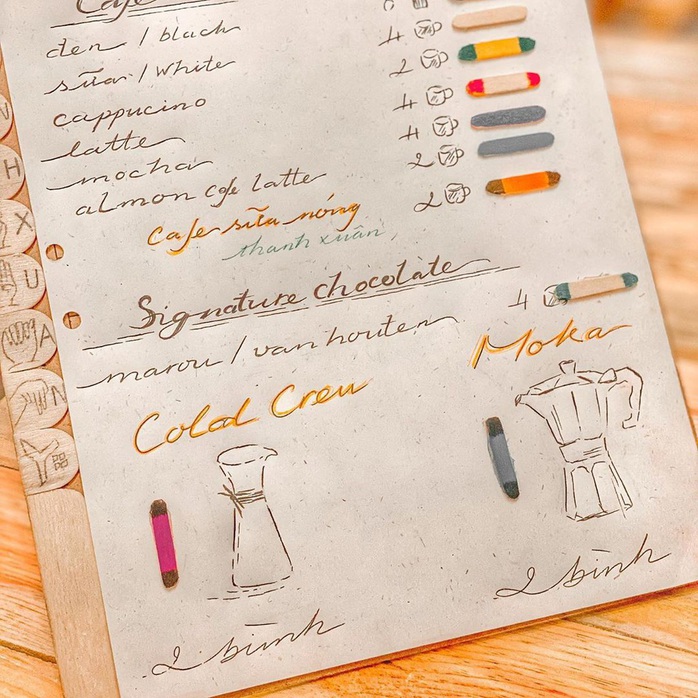 Cafe
đen / black
sữa / white
4
cappucino
2
latte
4
mocha
4
almon cafe latte
2
Cafe sữa nóng
2
thanh xuân
Signature chocolate
4
marou / van houten
Moka
Cold Crew
2 bình
2 bình
N
H
X
U
A
N